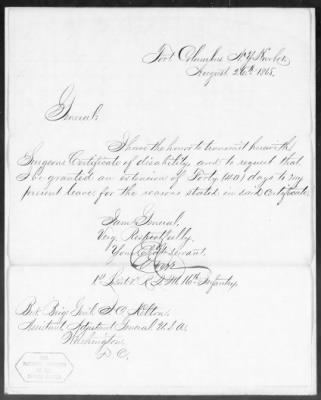 Fort Columbus N.Y. Harbor
August 26th 1865.
General:
I have the honor to transmit herewith
Surgeons Certificate of disability, and to request that
I be granted an extension of Forty (40) days to my
present leave for the reasons stated in said Certificate.
I am General,
Very Respectfully,
Your Obdt Servant.
1st Lieut 16th Infantry.
Bvt Brig Genl J C Kelton.
Assistant Adjutant General U.S.A.
Washington
D C.